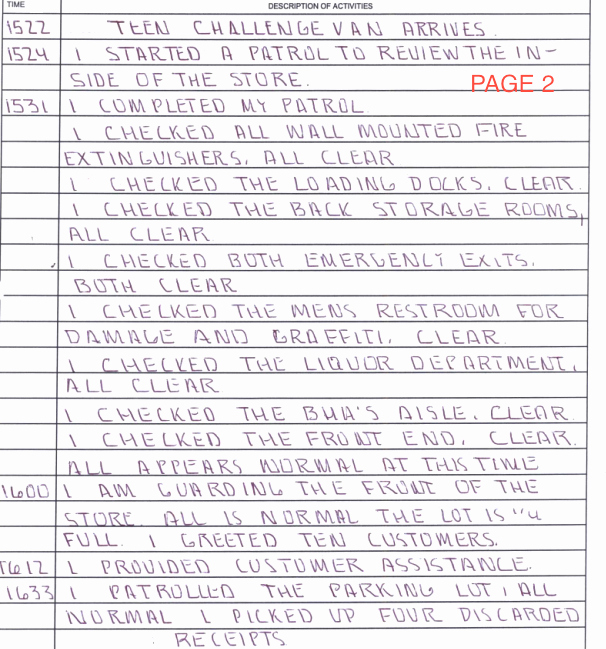 TIME DESCRIPTION OF ACTIVITIES
1522 TEEN CHALLENGE VAN ARRIVES.
1524 I STARTED A PATROL TO REVIEW THE IN-
SIDE OF THE STORE.
PAGE 2
1531 I COMPLETED MY PATROL
I CHECKED ALL WALL MOUNTED FIRE
EXTINGUISHERS, ALL CLEAR
I CHECKED THE LOADING DOCKS, CLEAR.
I CHECKED THE BACK STORAGE ROOMS,
ALL CLEAR
I CHECKED BOTH EMERGENCY EXITS.
BOTH CLEAR
I CHECKED THE MENS RESTROOM FOR
DAMAGE AND GRAFFITI, CLEAR.
I CHECKED THE LIQUOR DEPARTMENT,
ALL CLEAR
I CHECKED THE AISLE, CLEAR.
I CHECKED THE FRONT END, CLEAR.
ALL APPEARS NORMAL AT THIS TIME
1600 I AM GUARDING THE FRONT OF THE
STORE. ALL IS NORMAL THE LOT IS
FULL. I GREETED TEN CUSTOMERS.
1612 I PROVIDED CUSTOMER ASSISTANCE.
1633 I PATROLLED THE PARKING LOT, ALL
NORMAL I PICKED UP FOUR DISCARDED
RECEIPTS